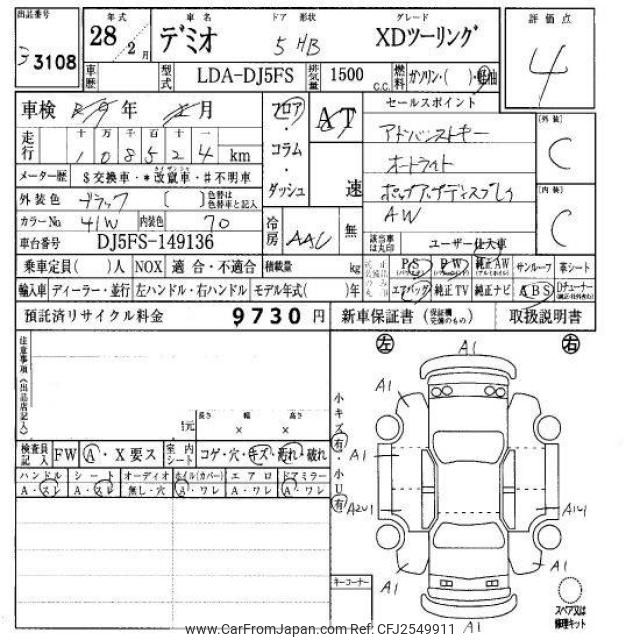 出品番号 年式 車名 ドア 形状 グレード 評価点
33108 28年2月 デミオ 5 HB XDツーリング 4
車歴 型式 LDA-DJ5FS 排気量 1500 C.C. 燃料 ガソリン・( )・軽油
車検 年 月 フロア・コラム・ダッシュ AT 速 セールスポイント (外装) C
走行 十 万 千 百 十 一
108524 km
アドバンストキー
オートライト
メーター歴 $交換車・*改竄車・#不明車
外装色 ブラック [ ] 色替は色替車と記入
AW (内装) C
カラーNo 41W 内装色 70 冷房 AAC 無
車台番号 DJ5FS-149136 該当車は丸印 ユーザー仕入車
乗車定員( )人 NOX 適合・不適合 積載量 kg PS PW 純正AW サンルーフ 革シート
輸入車 ディーラー・並行 左ハンドル・右ハンドル モデル年式( )年 エアバッグ 純正TV 純正ナビ ABS Dチューナー
預託済リサイクル料金 9730 円 新車保証書 (保証欄完備のもの) 取扱説明書
注意事項(出品店記入)
左 右
A1
A1
小キズ有・小U有
長さ 幅 高さ
× ×
検査員記入 FW A・X要ス 室内シート コゲ・穴・キズ・汚れ・破れ
A1
ハンドル シート オーディオ ホイル(カバー) エアロ ドアミラー
A・スレ A・スレ 無し・穴 A・ワレ A・ワレ A・ワレ
A2U1 A1U1
A1 A1
キーコーナー
スペア又は修理キット
A1
www.CarFromJapan.com Ref: CFJ2549911